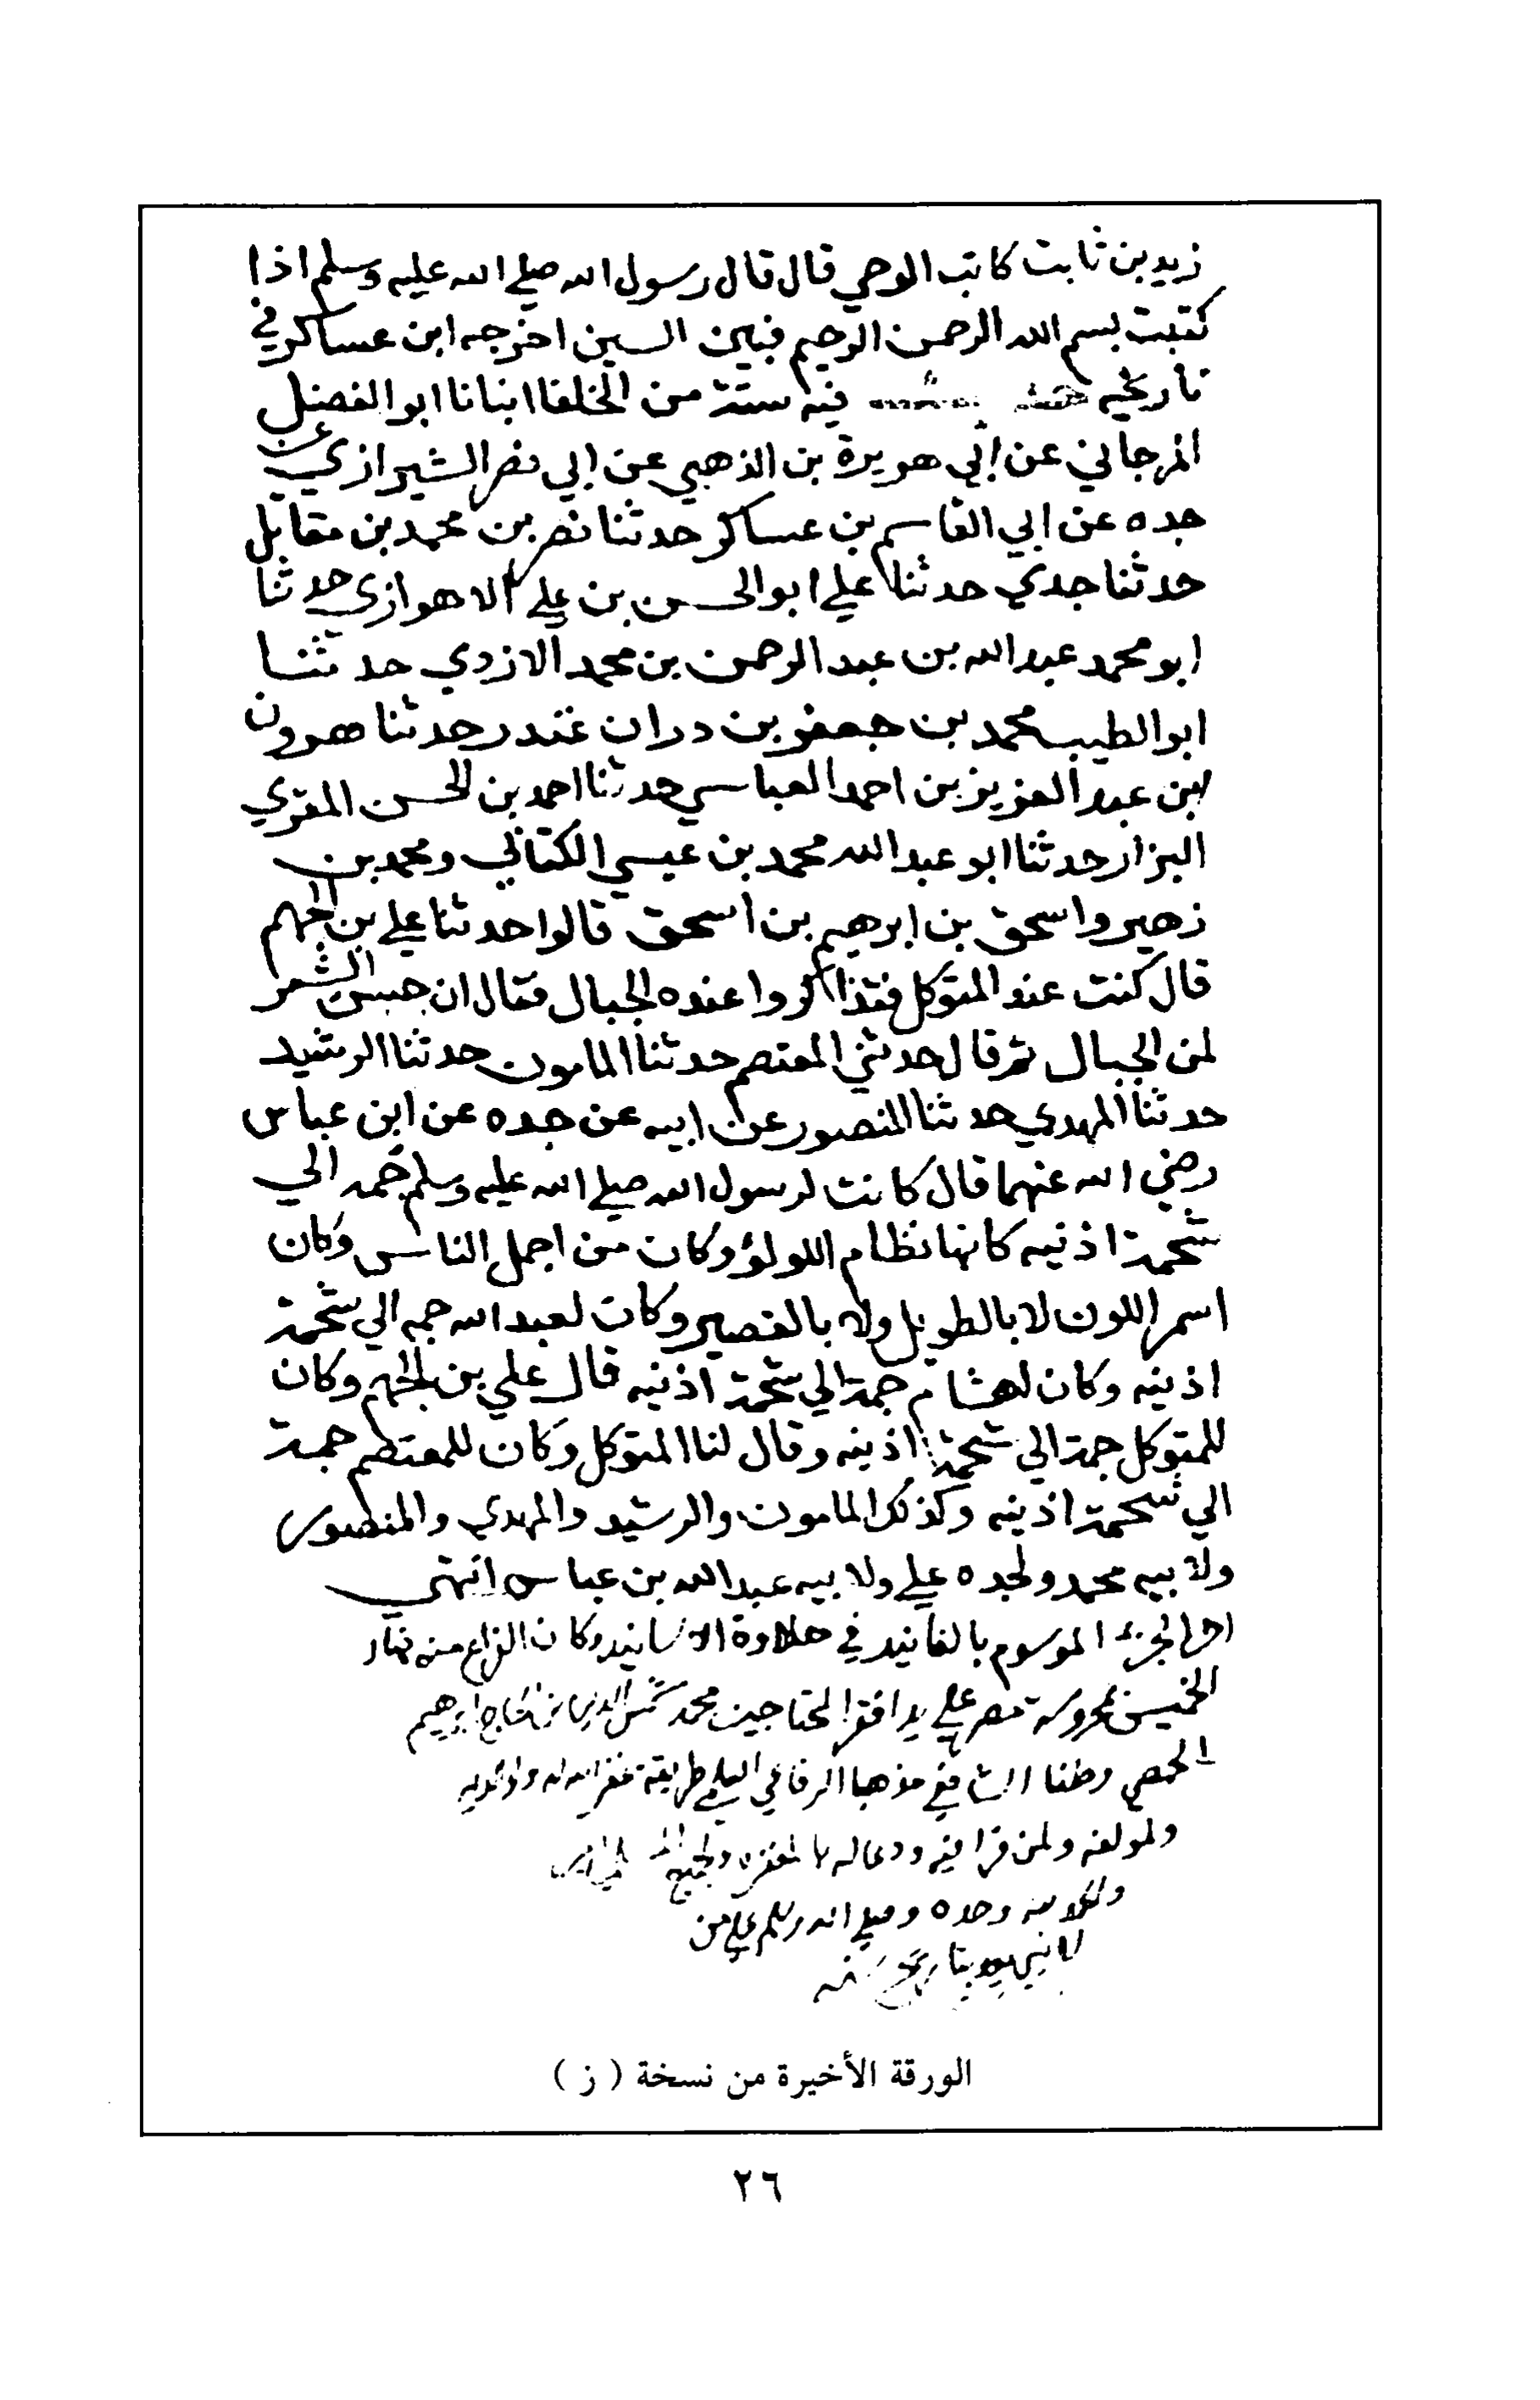 زيد بن ثابت كاتب الوحي قال قال رسول الله صلي الله عليه وسلم اذا
كتبت بسم الله الرحمن الرحيم فبين السين اخرجه ابن عساكر في
تاريخه فيه ستة من الخلفا انبانا ابو الفضل
المرجاني عن ابي هريرة بن الذهبي عن ابي نصر الشيرازي عن
جده عن ابي القاسم بن عساكر حدثنا نصر بن محمد بن مقابل
حدثنا جدي حدثنا علي ابو الحسن بن علي الاهوازي حدثنا
ابو محمد عبد الله بن عبد الرحمن بن محمد الازدي حدثنا
ابو الطيب محمد بن جعفر بن دران غندر حدثنا هرون
ابن عبد العزيز بن احمد العباسي حدثنا احمد بن الحسن المقري
البزار حدثنا ابو عبد الله محمد بن عيسي الكتاني ومحمد بن
زهير واسحق بن ابرهيم بن اسحق قالوا حدثنا علي بن الجهم
قال كنت عند المتوكل فتذاكروا عنده الجمال فقال ان حسن الشعر
لمن الجمال ثم قال حدثني المعتصم حدثنا المامون حدثنا الرشيد
حدثنا المهدي حدثنا المنصور عن ابيه عن جده عن ابن عباس
رضي الله عنهما قال كانت لرسول الله صلي الله عليه وسلم جمه الي
شحمة اذنيه كانها نظام اللولؤ وكان من اجمل الناس وكان
اسمر اللون لا بالطويل ولا بالقصير وكان لعبد الله جمه الي شحمة
اذنيه وكان لهشام جمة الي شحمة اذنيه قال علي بن الجهم وكان
للمتوكل جمة الي شحمة اذنيه وقال لنا المتوكل وكان للمعتصم جمة
الي شحمة اذنيه وكذلك المامون والرشيد والمهدي والمنصور
ولابيه محمد ولجده علي ولابيه عبد الله بن عباس انتهي
اخر الجزء الموسوم بالفانيد في حلاوة الاسانيد وكان الفراغ منه نهار
الخميس بمحروسة مصر علي يد افقر المحتاجين محمد شمس الدين بن الحاج ابرهيم
الحمصي وطنا الشافعي مذهبا الرفاعي طريقة غفر الله له ولوالديه
ولمولفه ولمن قرا فيه ودعا له بالمغفره ولجميع
والحمد لله وحده وصلي الله وسلم علي من
لا نبي بعده بتاريخ
الورقة الأخيرة من نسخة ( ز )
٢٦